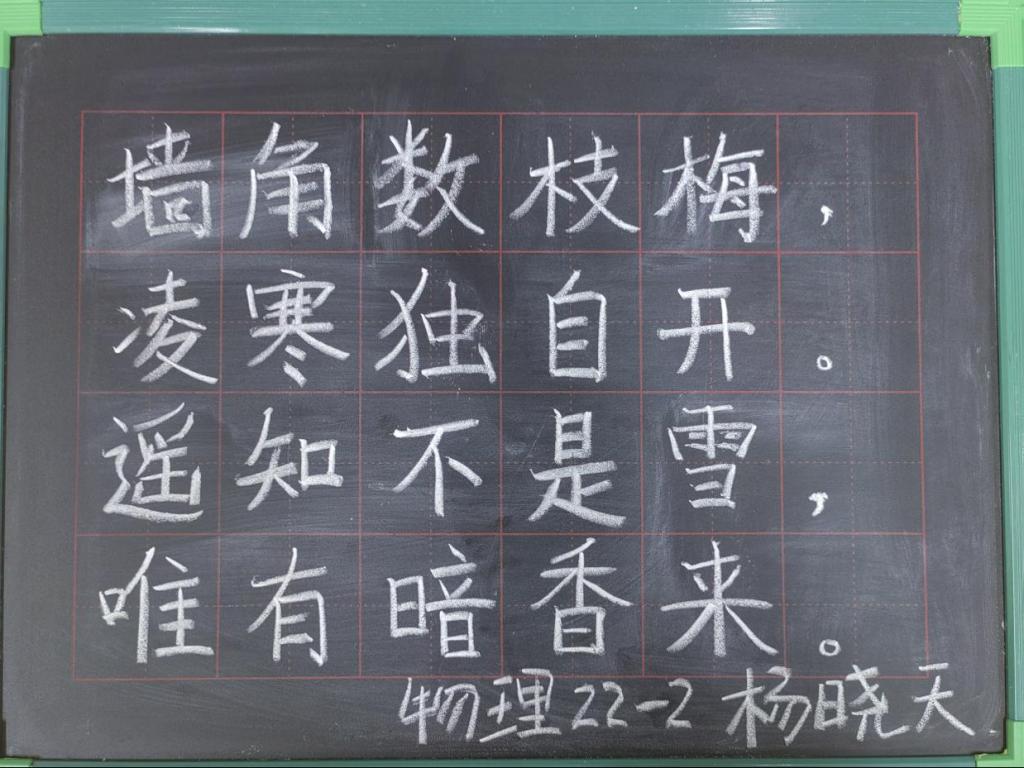 墙角数枝梅，
凌寒独自开。
遥知不是雪，
唯有暗香来。
物理22-2 杨晓天